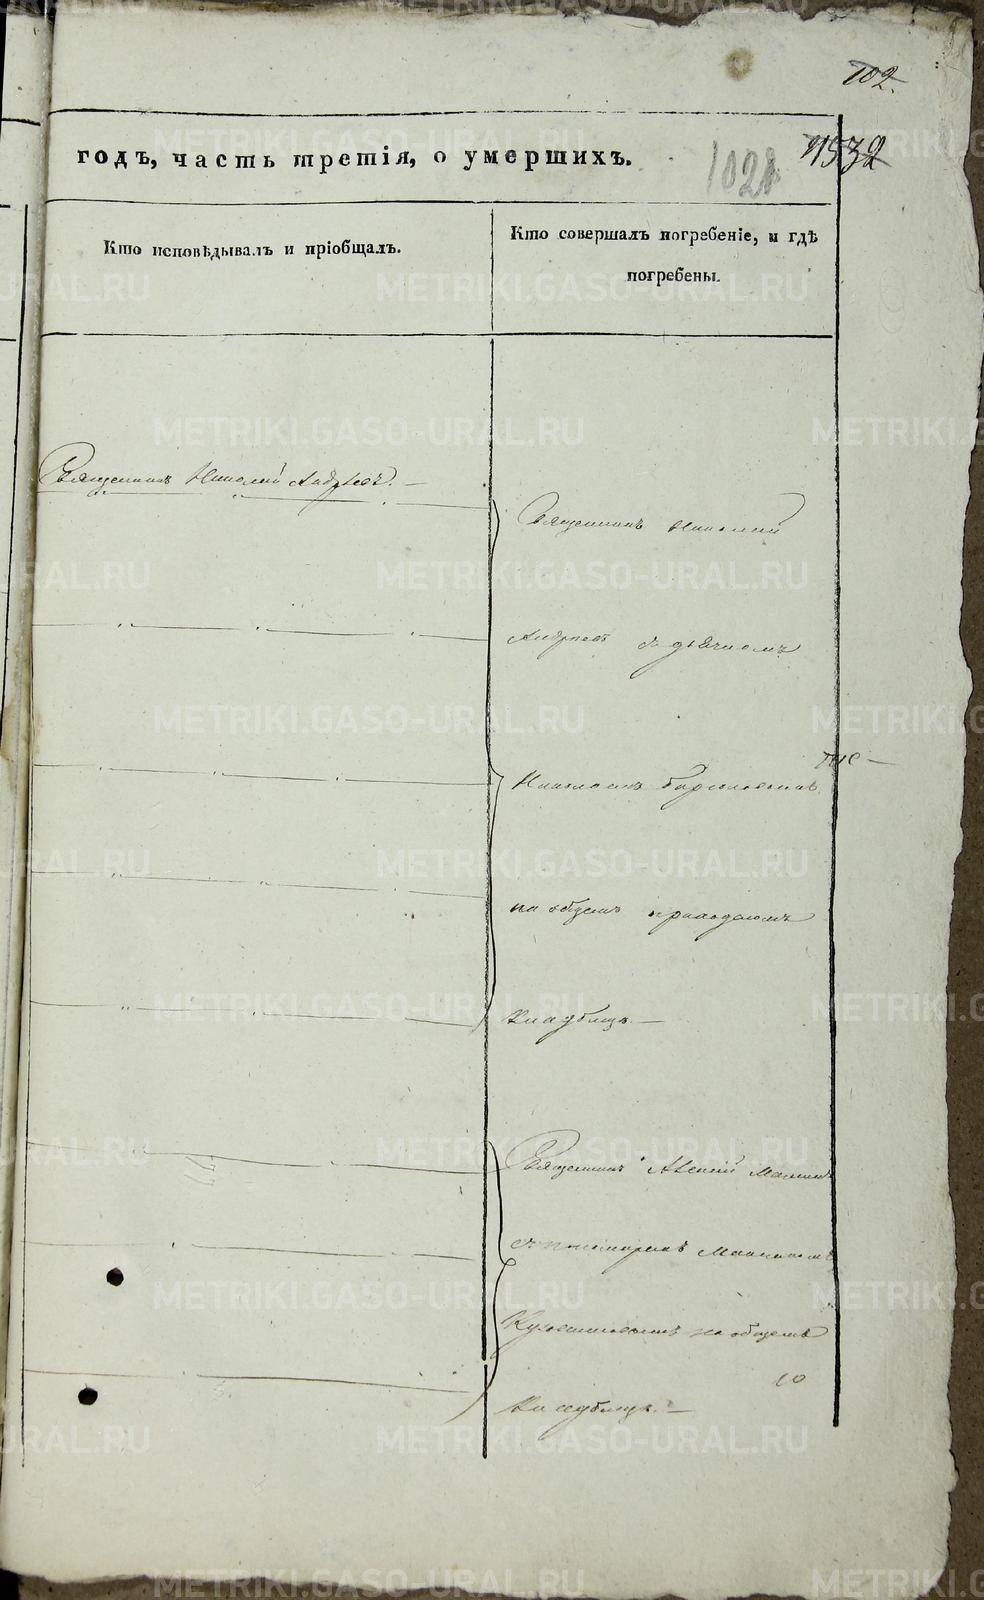 102.
годъ, часть третія, о умершихъ.
1028
1532
Кто исповѣдывалъ и пріобщалъ.
Кто совершалъ погребеніе, и гдѣ
погребены.
Священникъ Николай Андреевъ. —
Священникъ Николай
Андреевъ съ дьячкомъ
на общемъ приходскомъ
кладбищѣ. —
Священникъ Алексій
съ пономаремъ
на общемъ
кладбищѣ. —
METRIKI.GASO-URAL.RU